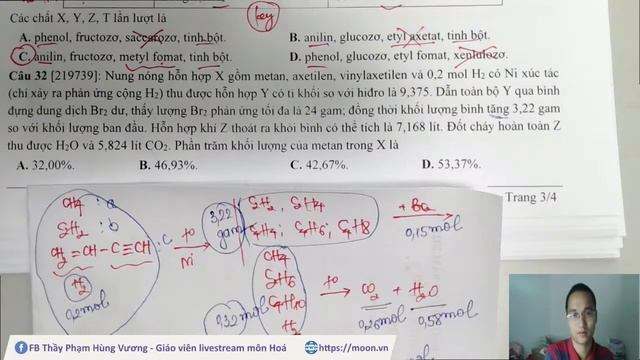 Các chất X, Y, Z, T lần lượt là
A. phenol, fructozơ, saccarozơ, tinh bột.
B. anilin, glucozơ, etyl axetat, tinh bột.
C. anilin, fructozơ, metyl fomat, tinh bột.
D. phenol, glucozơ, etyl fomat, xenlulozơ.
Câu 32 [219739]: Nung nóng hỗn hợp X gồm metan, axetilen, vinylaxetilen và 0,2 mol H2 có Ni xúc tác
(chỉ xảy ra phản ứng cộng H2) thu được hỗn hợp Y có tỉ khối so với hiđro là 9,375. Dẫn toàn bộ Y qua bình
đựng dung dịch Br2 dư, thấy lượng Br2 phản ứng tối đa là 24 gam; đồng thời khối lượng bình tăng 3,22 gam
so với khối lượng ban đầu. Hỗn hợp khí Z thoát ra khỏi bình có thể tích là 7,168 lít. Đốt cháy hoàn toàn Z
thu được H2O và 5,824 lít CO2. Phần trăm khối lượng của metan trong X là
A. 32,00%.
B. 46,93%.
C. 42,67%.
D. 53,37%.
Trang 3/4
CH4 : a
C2H2 : b
CH2=CH-C≡CH : C
H2
0,2mol
Ni
3,22
gam
C2H2, C2H4
C4H4, C4H6, C4H8
+ Br2
0,15mol
CH4
C2H6
C4H10
H2
0,32mol
CO2 + H2O
0,26mol
0,58mol
FB Thầy Phạm Hùng Vương - Giáo viên livestream môn Hoá
https://moon.vn